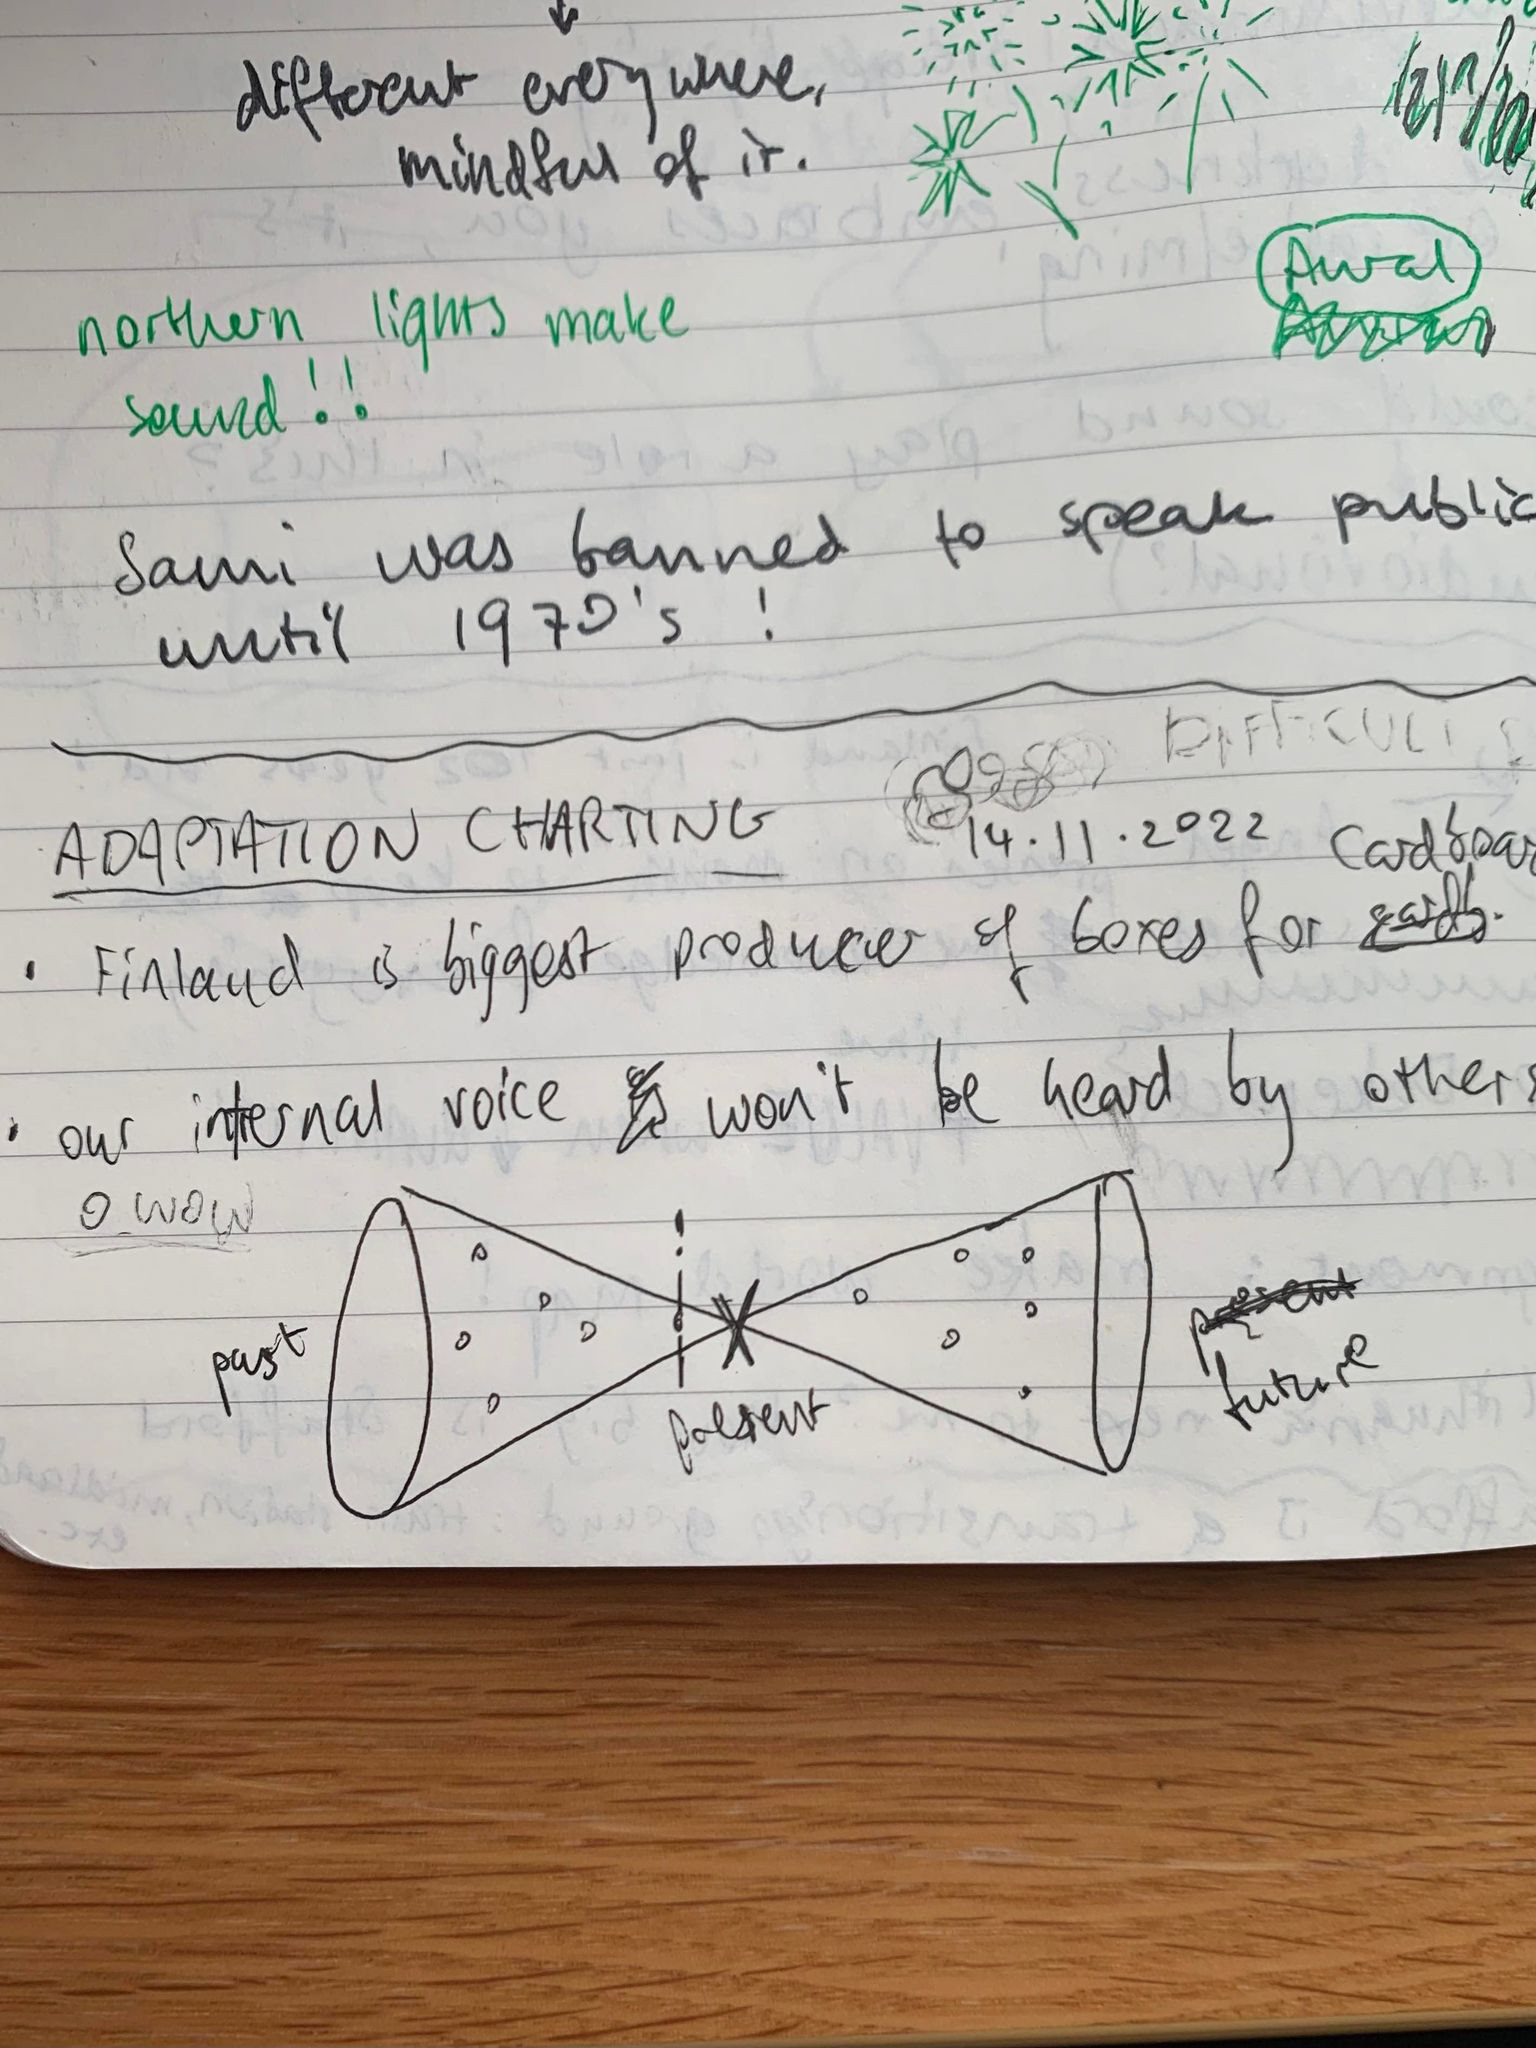 different everywhere,
mindful of it.
Aural
northern lights make
sound!!
Sami was banned to speak public
until 1970's !
DIFFICULT ?
ADAPTATION CHARTING
14.11.2022
Cardboar
• Finland is biggest producer of boxes for cardb.
• our internal voice won't be heard by others
O WOW
past
present
present
future